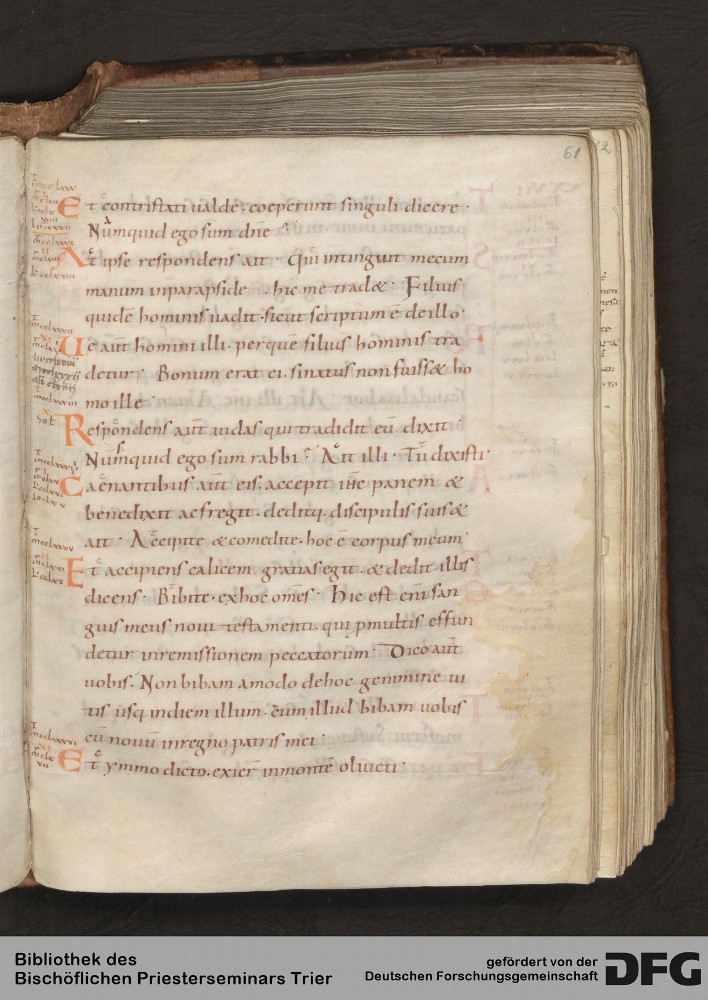 61
Et contristati ualde, coeperunt singuli dicere.
Numquid ego sum dn̄e
At ipse respondens ait. Qui intinguit mecum
manum inparapside. hic me trad&. Filius
quidē hominis uadit. sicut scriptum ē deillo.
Ue aut̄ homini illi. perquē filius hominis tra
detur. Bonum erat ei. sinatus non fuiss& ho
mo ille.
Respondens aut̄ iudas qui tradidit eū dixit
Numquid ego sum rabbi. Ait illi. Tu dixisti.
Caenantibus aut̄ eis. accepit ih̄s panem &
benedixit acfregit. deditq. discipulis suis &
ait. Accipite & comedite. hoc ē corpus meum.
Et accipiens calicem. gratias egit. & dedit illis
dicens. Bibite. exhoc om̄s. Hic est eni san
guis meus noui testamenti. qui p̱multis effun
detur inremissionem peccatorum. Dico aut̄
uobis. Non bibam amodo dehoc genimine ui
tis usq. indiem illum. cum illud bibam uobis
cū nouū inregno patris mei.
Et ymmo dicto. exier̄ inmontē oliueti.
Bibliothek des
Bischöflichen Priesterseminars Trier
gefördert von der
Deutschen Forschungsgemeinschaft
DFG